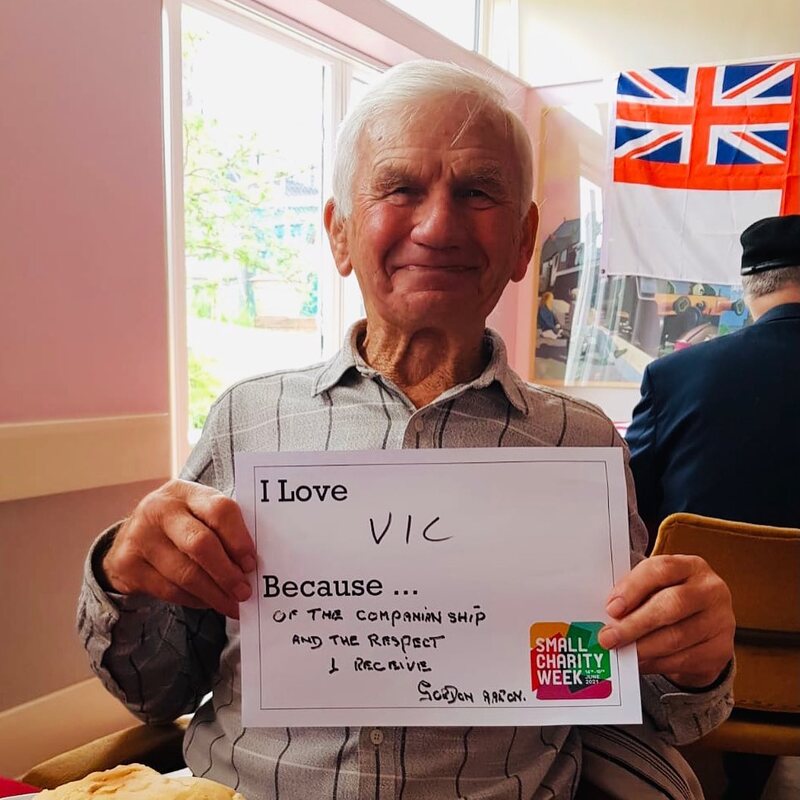 I Love
VIC
Because ...
OF THE COMPANIANSHIP
AND THE RESPECT
I RECEIVE
GORDON AARON.
SMALL
CHARITY
WEEK
14TH-19TH
JUNE
2021